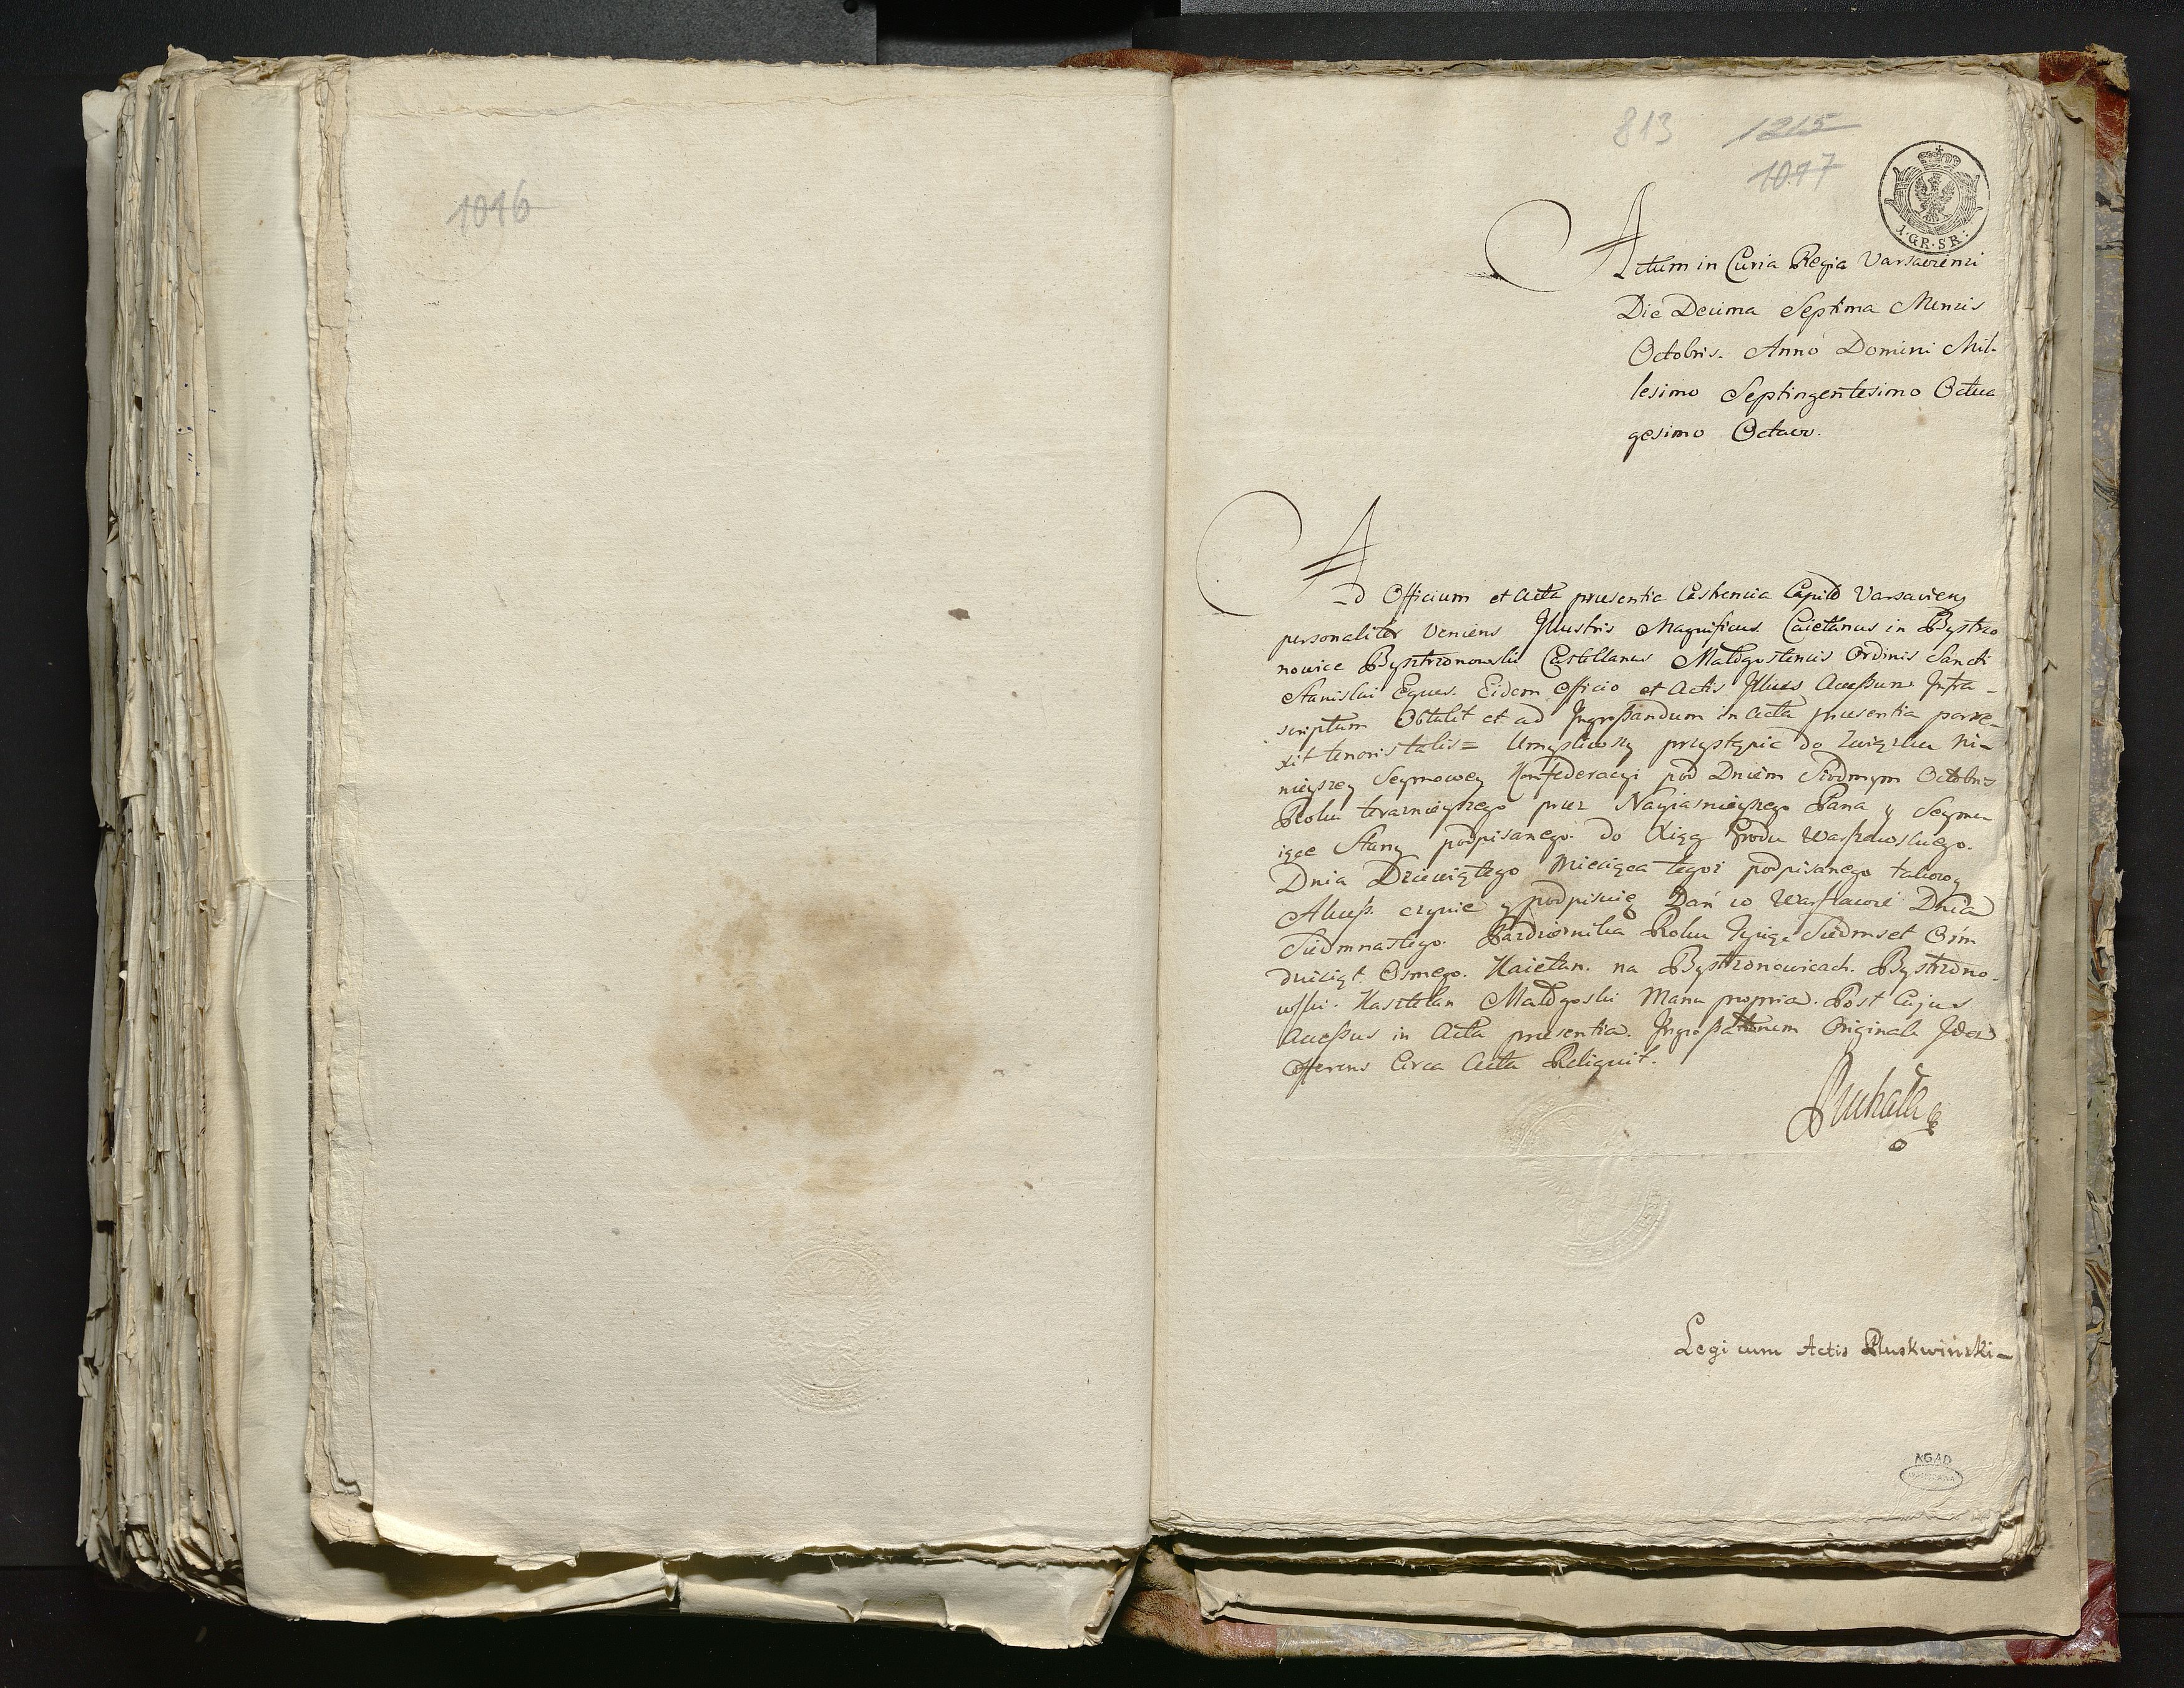 1016
813 1215
1017
1·GR·SR:
Actum in Curia Regia Varsaviensi
Die Decima Septima Mensis
Octobris. Anno Domini Mil-
lesimo Septingentesimo Octua
gesimo Octavo.
Ad Officium et Acta presentia Castrensia Capita Varsavien
personaliter Veniens Illustris Magnificus Caietanus in Bystrzo
nowice Bystrzonowski Castellanus Małogostensis Ordinis Sancti
Stanislai Eques. Eidem Officio et Actis Illius Accessum Infra-
scriptum Obtulit et ad Ingrossandum in Acta presentia porre-
xit tenoris talis= Umysliwszy przystąpic do Związku ni-
nieyszey Seymowey Konfederacyi pod Dniem Siodmym Octobris
Roku teraznieyszego przez Nayiasnieyszego Pana y Seymu
iące Stany podpisanego do Xiąg Grodu Warszawskiego.
Dnia Dziewiątego Miesiąca tegoż podpisanego takowy
Akcess. czynię y podpisuię Dań w Warszawie Dnia
Siedmnastego. Pazdziernika Roku Tysiąc Siedmset Osm
dziesiąt Osmego. Kaietan. na Bystrzonowicach. Bystrzono-
wski. Kasztelan Małogoski Manu propria. Post Cujus
Accessus in Acta presentia. Ingrossationem Originale Idem
Offerens Circa Acta Reliquit.
Legi cum Actis Pluskwiński-
AGAD
WARSZAWA